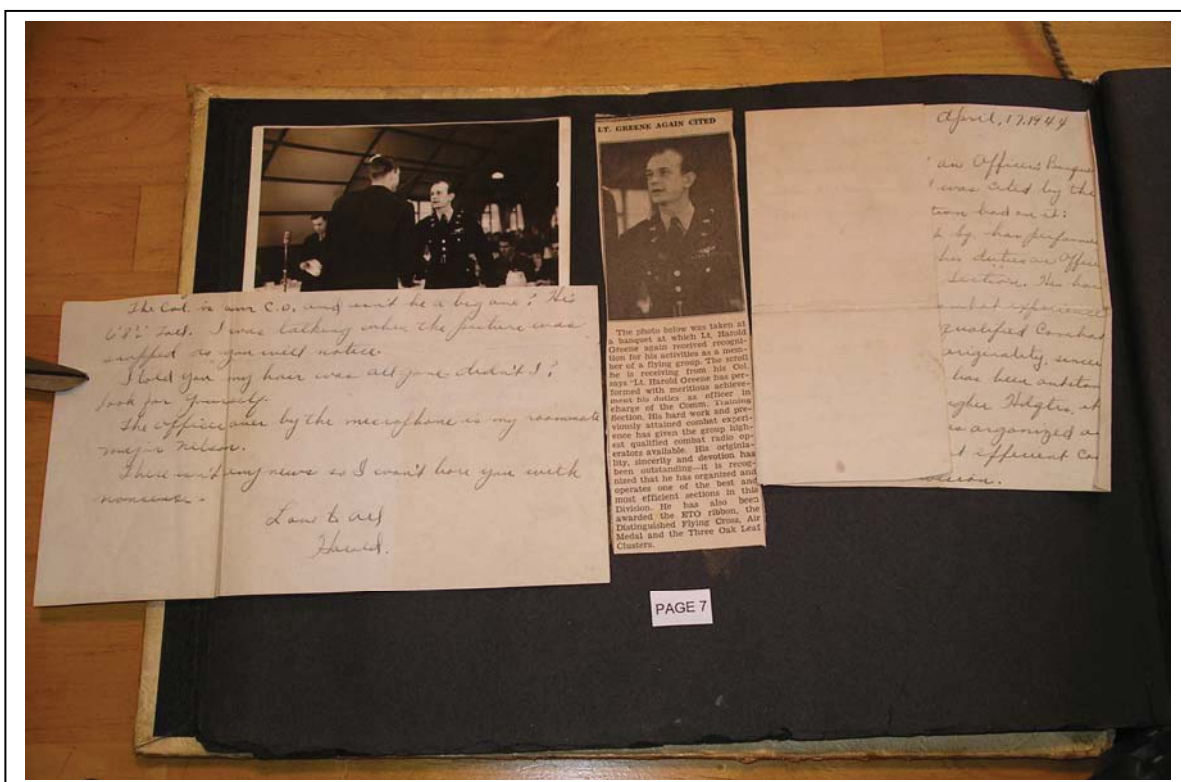 The Col. is our C.O. and isn't he a big one? He's
tall. I was talking when the picture was
snapped as you will notice.
I told you my hair was all gone didn't I?
Look for yourself.
The officer over by the microphone is my roommate
major Nilson.
There isn't any news so I won't bore you with
nonsense.
Love to all
Harold.
LT. GREENE AGAIN CITED
The photo below was taken at
a banquet at which Lt. Harold
Greene again received recogni-
tion for his activities as a mem-
ber of a flying group. The scroll
he is receiving from his Col.
says "Lt. Harold Greene has per-
formed with meritious achieve-
ment his duties as officer in
charge of the Comm. Training
Section. His hard work and pre-
viously attained combat experi-
ence has given the group high-
est qualified combat radio op-
erators available. His originia-
lity, sincerity and devotion has
been outstanding—it is recog-
nized that he has organized and
operates one of the best and
most efficient sections in this
Division. He has also been
awarded the ETO ribbon, the
Distinguished Flying Cross, Air
Medal and the Three Oak Leaf
Clusters.
April, 17, 1944
an Officers Banque
was cited by the
tion had on it:
by, has performe
his duties as Office
Section. His har
ombat experience
qualified Combat
originality, since
has been outstan
Hdqtrs, it
organized a
t efficient
PAGE 7